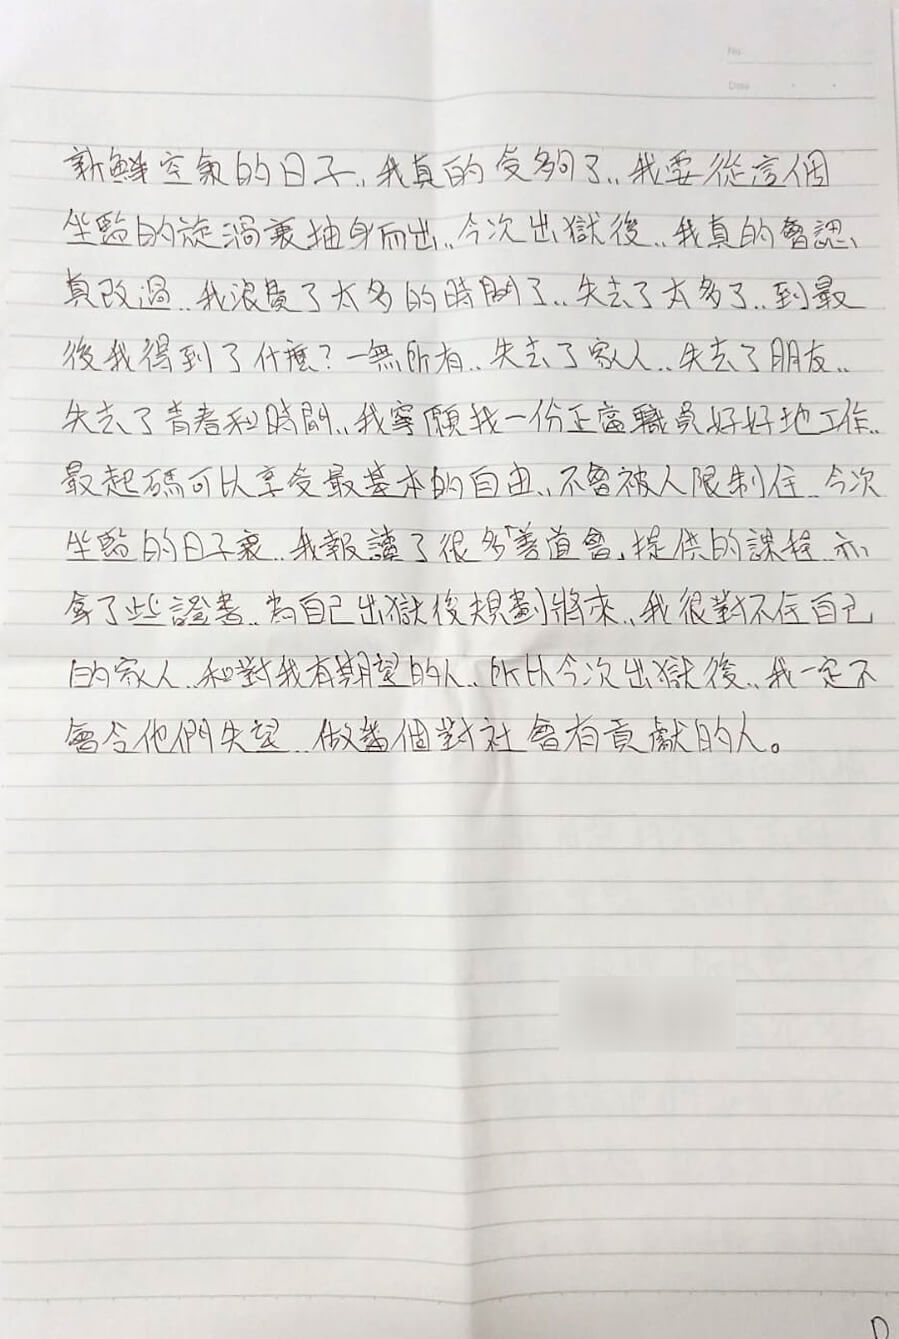 No.
Date
新鮮空氣的日子..我真的受夠了..我要從這個
坐監的旋渦裏抽身而出..今次出獄後..我真的會認
真改過..我浪費了太多的時間了..失去了太多了..到最
後我得到了什麼?一無所有..失去了家人..失去了朋友..
失去了青春和時間..我寧願找一份正當職員好好地工作..
最起碼可以享受最基本的自由..不會被人限制住..今次
坐監的日子裏..我報讀了很多「善導會」提供的課程..亦
拿了些證書..為自己出獄後規劃將來..我很對不住自己
的家人..和對我有期望的人..所以今次出獄後..我一定不
會令他們失望..做番個對社會有貢獻的人。